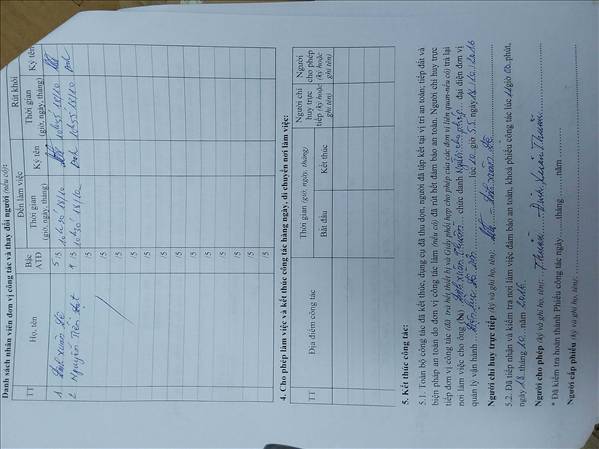 Danh sách nhân viên đơn vị công tác và thay đổi người (nếu có):
TT Họ, tên Bậc ATĐ Đến làm việc Rút khỏi
Thời gian (giờ, ngày, tháng) Ký tên Thời gian (giờ, ngày, tháng) Ký tên
1 Đinh Xuân 5/5 10h30 18/10 10h55 18/10
2 Nguyễn Tiến Đạt 4/5 10h30 18/10 Anh 10h55 18/10 Anh
/5
/5
/5
/5
/5
/5
/5
/5
4. Cho phép làm việc và kết thúc công tác hàng ngày, di chuyển nơi làm việc:
TT Địa điểm công tác Thời gian (giờ, ngày, tháng) Người chỉ huy trực tiếp (ký hoặc ghi tên) Người cho phép (ký hoặc ghi tên)
Bắt đầu Kết thúc
5. Kết thúc công tác:
5.1. Toàn bộ công tác đã kết thúc, dụng cụ đã thu dọn, người đã tập kết tại vị trí an toàn, tiếp đất và
biện pháp an toàn do đơn vị công tác làm (nếu có) đã rút hết đảm bảo an toàn. Người chỉ huy trực
tiếp đơn vị công tác (đã trả hết thiết bị và Giấy phối hợp cho phép của các đơn vị liên quan-nếu có) trả lại
nơi làm việc cho ông (bà) Đinh Xuân Thuần chức danh Người cho phép đại diện đơn vị
quản lý vận hành Điện lực lúc 10 giờ 55 ngày 18/10/2016
Người chỉ huy trực tiếp (ký và ghi họ, tên): Đinh Xuân
5.2. Đã tiếp nhận và kiểm tra nơi làm việc đảm bảo an toàn, khoá phiếu công tác lúc 11 giờ 00 phút,
ngày 18 tháng 10 năm 2016
Người cho phép (ký và ghi họ, tên): Thuần Đinh Xuân Thuần
* Đã kiểm tra hoàn thành Phiếu công tác ngày tháng năm
Người cấp phiếu (ký và ghi họ, tên):